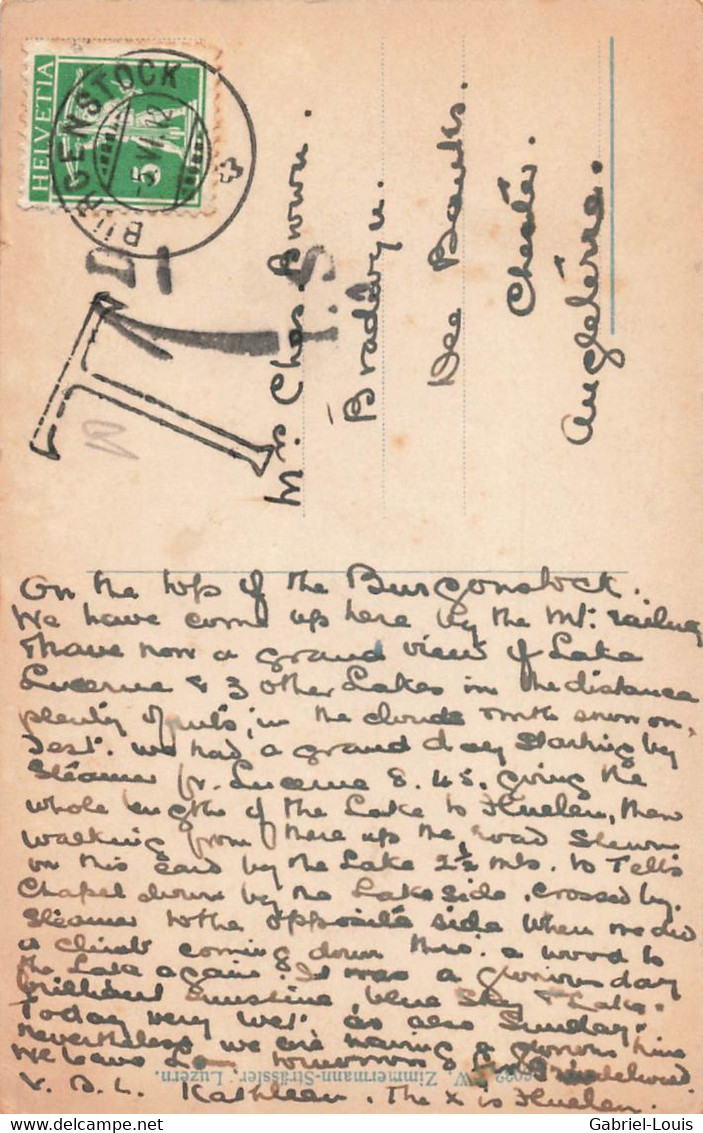 HELVETIA
BÜRGENSTOCK
-5.VI.12
T
Mrs Chas. Brown.
Dee Banks.
Chester.
Angleterre.
On the top of the Burgonstock.
We have come up here by the Mt: railway
& have now a grand view of Lake
Lucerne & 3 other Lakes in the distance
plenty of mts; in the clouds with snow on.
Yest. we had a grand day starting by
Steamer fr. Lucerne 8.45. going the
whole length of the Lake to Fluelen, then
walking from there up the road Shewn
on this card by the Lake 2½ mls. to Tell's
Chapel down by the Lake side. Crossed by
Steamer to the opposite side when we did
a climb coming down thro. a wood to
the Lake again. It was a glorious day
brilliant Sunshine, blue Sky & Lake.
Today very wet as also Sunday.
Nevertheless we are having a glorious time
We leave tomorrow for Grindelwald.
Kathleen. The X is Fluelen.
W. Zimmermann-Strässler, Luzern.
Gabriel-Louis